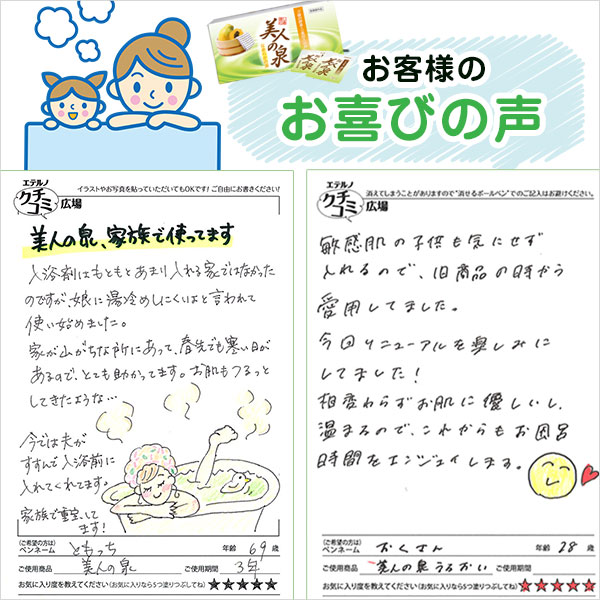 美人の泉
お客様の
お喜びの声
エテルノ
クチコミ広場
イラストやお写真を貼っていただいてもOKです!ご自由にお書きください!
美人の泉、家族で使ってます
入浴剤はもともとあまり入れる家ではなかった
のですが、娘に湯冷めしにくいよと言われて
使い始めました。
家が山がちな所にあって、春先でも寒い日が
あるので、とても助かってます。お肌もつるっと
してきたような…
今では夫が
すすんで入浴前に
入れてくれてます。
家族で重宝して
ます!
(ご希望の方は)
ペンネーム ともっち 年齢 69 歳
ご使用商品 美人の泉 ご使用期間 3年
お気に入り度を教えてください(お気に入りなら5つ塗りつぶしてね) ★★★★★
エテルノ
クチコミ広場
消えてしまうことがありますので"消せるボールペン"でのご記入はお避けください。
敏感肌の子供も気にせず
入れるので、旧商品の時から
愛用してました。
今回リニューアルを楽しみに
してました!
相変わらずお肌に優しいし、
温まるので、これからもお風呂
時間をエンジョイします。
(ご希望の方は)
ペンネーム おくさん 年齢 38 歳
ご使用商品 美人の泉うるおい ご使用期間
お気に入り度を教えてください(お気に入りなら5つ塗りつぶしてね) ★★★★★